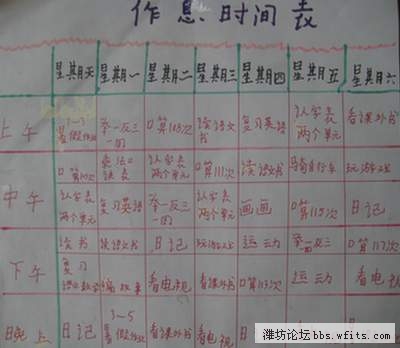 作息时间表
星期天 星期一 星期二 星期三 星期四 星期五 星期六
上午
举一反三 口算118次 读语文书 复习英语 认字表两个单元 看课外书
口算110次 乘法口诀表 认字表两个单元 口算111次 读语文书 骑自行车 玩游戏
中午
认字表两个单元 复习英语 举一反三 认字表两个单元 画画 口算115次 日记
读书 读语文书 日记 玩游戏 运动 举一反三 口算117次
下午
复习 看电视 看课外书 口算113次 运动 看电
晚上
日记 3-5暑假作业 看课外书 看电视 日 看课外书
潍坊论坛 bbs.wfits.com